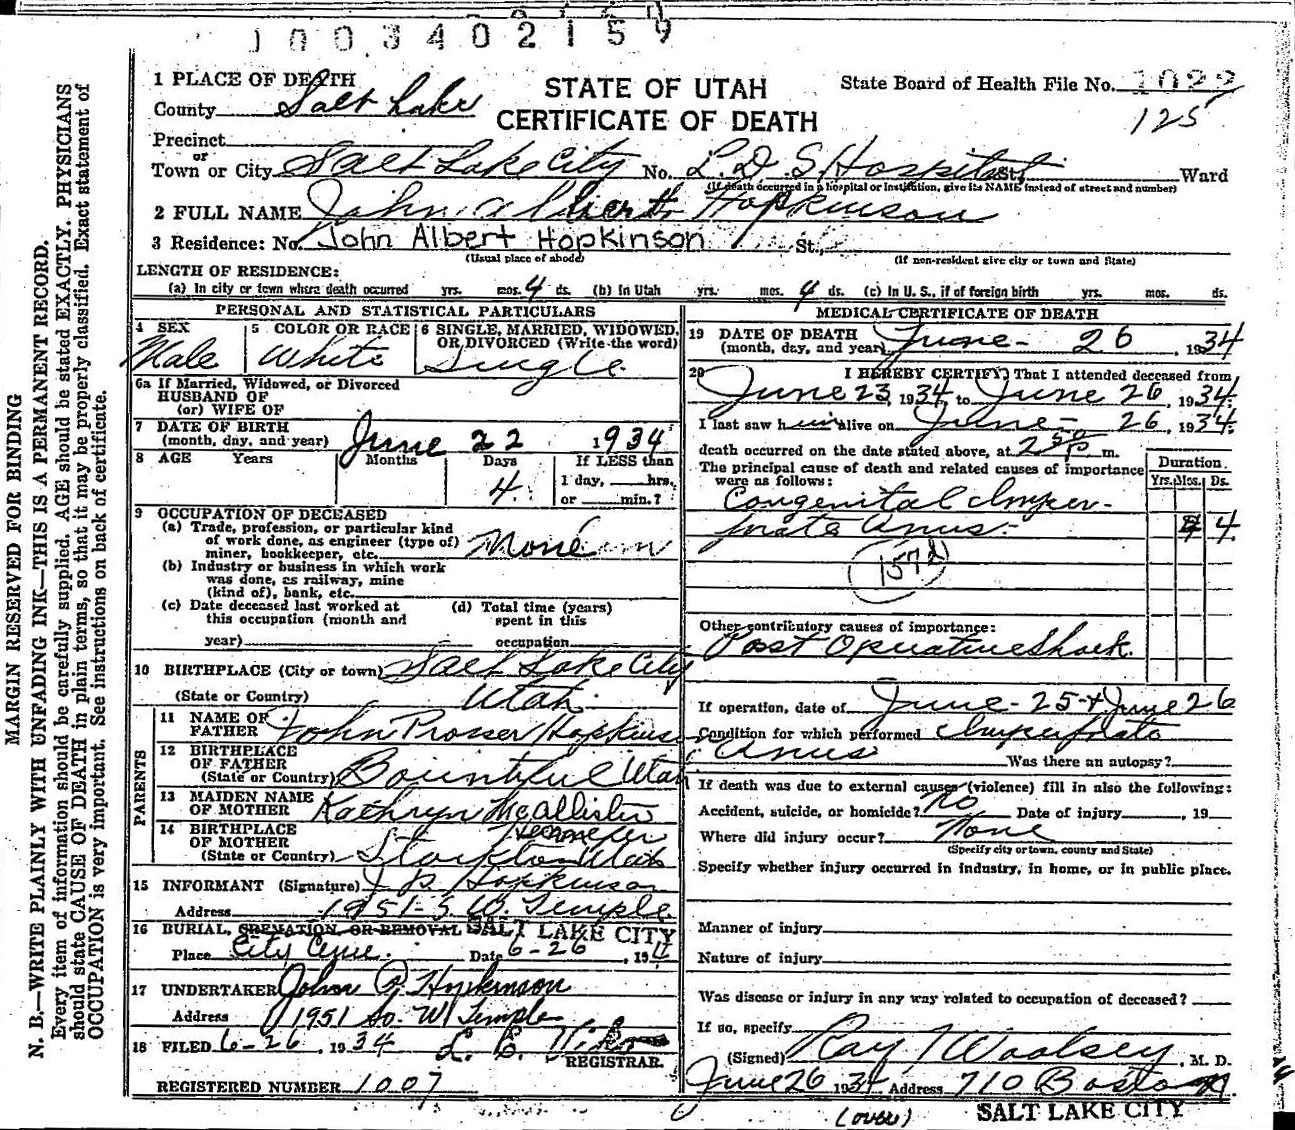 1003402159
1 PLACE OF DEATH
County Salt Lake
STATE OF UTAH
CERTIFICATE OF DEATH
State Board of Health File No. 1022
125
Precinct
or
Town or City Salt Lake City No. L.D.S Hospital St. Ward
(If death occurred in a hospital or institution, give its NAME instead of street and number)
2 FULL NAME John Albert Hopkinson
3 Residence: No. John Albert Hopkinson St.
(Usual place of abode) (If non-resident give city or town and State)
LENGTH OF RESIDENCE:
(a) In city or town where death occurred yrs. mos. 4 ds. (b) In Utah yrs. mos. 4 ds. (c) In U. S., if of foreign birth yrs. mos. ds.
PERSONAL AND STATISTICAL PARTICULARS
4 SEX 5 COLOR OR RACE 6 SINGLE, MARRIED, WIDOWED, OR DIVORCED (Write the word)
Male White Single
6a If Married, Widowed, or Divorced
HUSBAND OF
(or) WIFE OF
7 DATE OF BIRTH
(month, day, and year) June 22 1934
8 AGE Years Months Days If LESS than
4 1 day, hrs.
or min.?
9 OCCUPATION OF DECEASED
(a) Trade, profession, or particular kind
of work done, as engineer (type of)
miner, bookkeeper, etc. None
(b) Industry or business in which work
was done, as railway, mine
(kind of), bank, etc.
(c) Date deceased last worked at (d) Total time (years)
this occupation (month and spent in this
year) occupation
10 BIRTHPLACE (City or town) Salt Lake City
(State or Country) Utah
PARENTS
11 NAME OF
FATHER John Prosser Hopkinson
12 BIRTHPLACE
OF FATHER
(State or Country) Bountiful Utah
13 MAIDEN NAME
OF MOTHER Kathryn McAllister
14 BIRTHPLACE
OF MOTHER
(State or Country) Stockton Utah
15 INFORMANT (Signature) J P Hopkinson
Address 1951 S. W. Temple
16 BURIAL, CREMATION, OR REMOVAL SALT LAKE CITY
Place City Ceme. Date 6-26, 19
17 UNDERTAKER John P. Hopkinson
Address 1951 So. W Temple
18 FILED 6-26, 1934 L. E.
REGISTRAR.
REGISTERED NUMBER 1007
MEDICAL CERTIFICATE OF DEATH
19 DATE OF DEATH
(month, day, and year) June 26, 1934
20 I HEREBY CERTIFY, That I attended deceased from
June 23, 1934 to June 26, 1934.
I last saw him alive on June 26, 1934.
death occurred on the date stated above, at 2 50 P m.
The principal cause of death and related causes of importance
were as follows:
Duration
Yrs. Mos. Ds.
Congenital Imper-
forate Anus. 4
157d
Other contributory causes of importance:
Post Operative Shock.
If operation, date of June 25 + June 26
Condition for which performed Imperforate
Anus
Was there an autopsy?
If death was due to external causes (violence) fill in also the following:
Accident, suicide, or homicide? No Date of injury, 19
Where did injury occur? None
(Specify city or town, county and State)
Specify whether injury occurred in industry, in home, or in public place.
Manner of injury
Nature of injury
Was disease or injury in any way related to occupation of deceased?
If so, specify
(Signed) Ray T Woolsey, M. D.
June 26 1934 Address 710 Boston
(over) SALT LAKE CITY
MARGIN RESERVED FOR BINDING
N. B.—WRITE PLAINLY WITH UNFADING INK—THIS IS A PERMANENT RECORD.
Every item of information should be carefully supplied. AGE should be stated EXACTLY. PHYSICIANS
should state CAUSE OF DEATH in plain terms, so that it may be properly classified. Exact statement of
OCCUPATION is very important. See instructions on back of certificate.